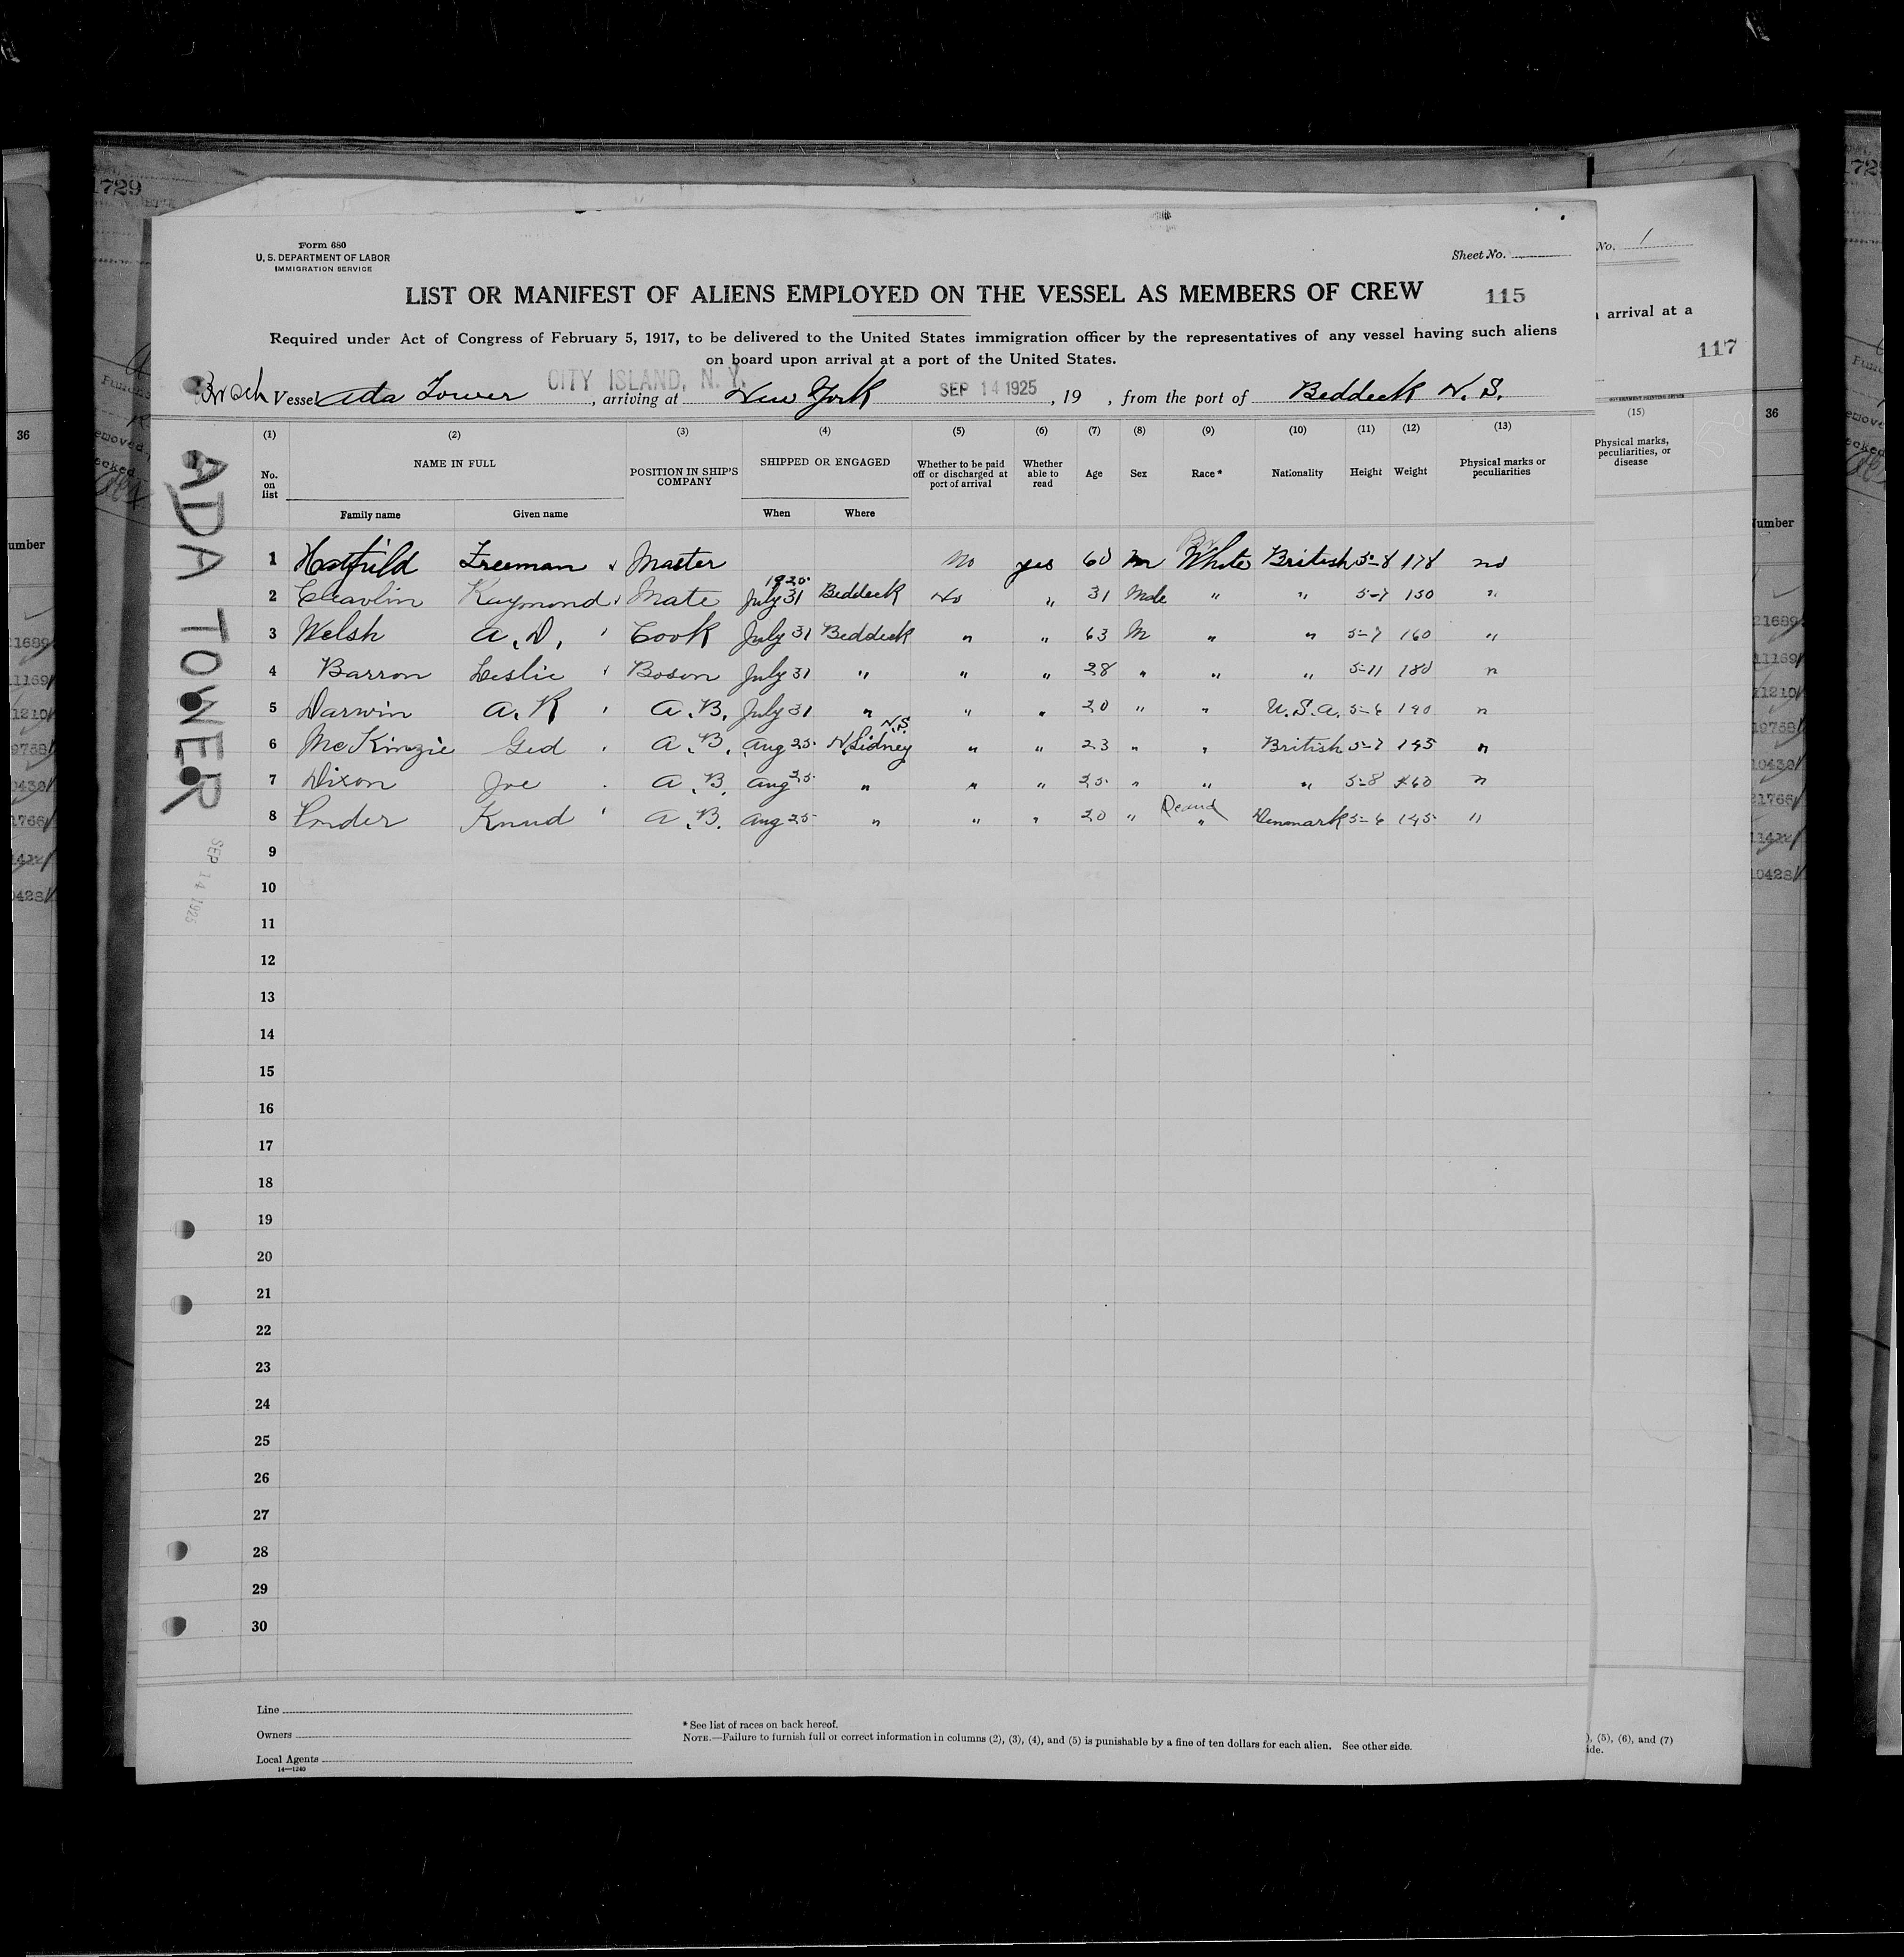 Form 680
U. S. DEPARTMENT OF LABOR
IMMIGRATION SERVICE
Sheet No.
LIST OR MANIFEST OF ALIENS EMPLOYED ON THE VESSEL AS MEMBERS OF CREW 115
Required under Act of Congress of February 5, 1917, to be delivered to the United States immigration officer by the representatives of any vessel having such aliens
on board upon arrival at a port of the United States.
CITY ISLAND, N. Y.
Br sch Vessel Ada Tower , arriving at New York SEP 14 1925 , 19 , from the port of Beddeck N. S.
ADA TOWER
SEP 14 1925
(1) (2) (3) (4) (5) (6) (7) (8) (9) (10) (11) (12) (13)
No. on list NAME IN FULL POSITION IN SHIP'S COMPANY SHIPPED OR ENGAGED Whether to be paid off or discharged at port of arrival Whether able to read Age Sex Race * Nationality Height Weight Physical marks or peculiarities
Family name Given name When Where
1 Hatfield Freeman Master No yes 60 m White British 5-8 178 no
2 Raymond Mate 1925 July 31 Beddeck No " 31 Male " " 5-7 150 "
3 Welsh A. D. Cook July 31 Beddeck " " 63 M " " 5-7 160 "
4 Barron Leslie Bosun July 31 " " " 28 " " " 5-11 180 "
5 Darwin A. R A. B. July 31 " " " 20 " " U. S. A. 5-6 140 "
6 McKinzie Ged A. B. Aug 25 N. Sidney N.S. " " 23 " " British 5-7 145 "
7 Dixon Joe A. B. Aug 25 " " " 25 " " " 5-8 160 "
8 Ponder Knud A. B. Aug 25 " " " 20 " " Denmark 5-6 145 "
9
10
11
12
13
14
15
16
17
18
19
20
21
22
23
24
25
26
27
28
29
30
Line
Owners
Local Agents
14—1240
* See list of races on back hereof.
NOTE.—Failure to furnish full or correct information in columns (2), (3), (4), and (5) is punishable by a fine of ten dollars for each alien. See other side.
1729
No. 1
arrival at a
117
(15)
Physical marks,
peculiarities, or
disease
), (5), (6), and (7)
ide.
36
umber
36